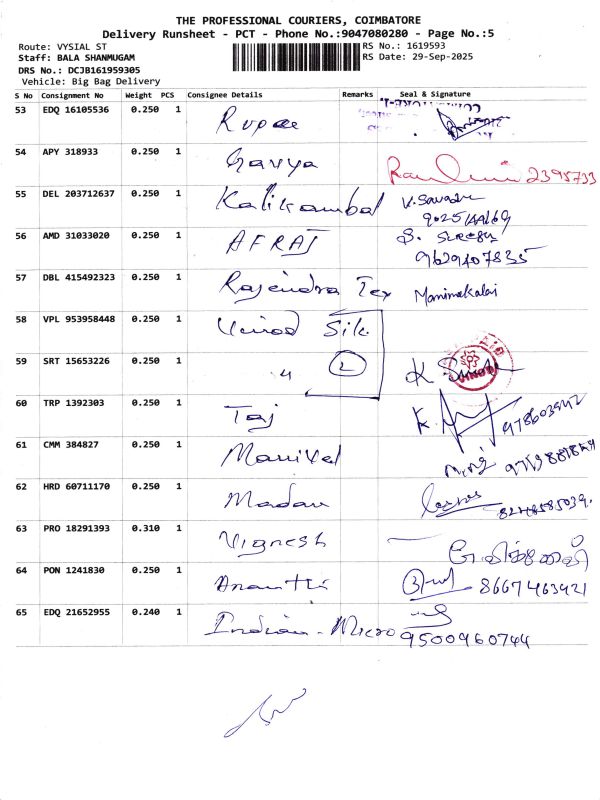 THE PROFESSIONAL COURIERS, COIMBATORE
Delivery Runsheet - PCT - Phone No.:9047080280 - Page No.:5
Route: VYSIAL ST
RS No.: 1619593
Staff: BALA SHANMUGAM
RS Date: 29-Sep-2025
DRS No.: DCJB161959305
Vehicle: Big Bag Delivery
S No Consignment No Weight PCS Consignee Details Remarks Seal & Signature
53 EDQ 16105536 0.250 1 Rupee
54 APY 318933 0.250 1 Gavya 2395733
55 DEL 203712637 0.250 1 Kalikambal
56 AMD 31033020 0.250 1 AFRAJ S. Suresh
9629407835
57 DBL 415492323 0.250 1 Rajendra Tex Manimekalai
58 VPL 953958448 0.250 1 Vinod Silk
59 SRT 15653226 0.250 1 " 2 K
60 TRP 1392303 0.250 1 Taj K.
61 CMM 384827 0.250 1 Manivel
62 HRD 60711170 0.250 1 Madan
63 PRO 18291393 0.310 1 Vignesh
64 PON 1241830 0.250 1 Ananthi 8667463921
65 EDQ 21652955 0.240 1 Indian - Micro 9500960744